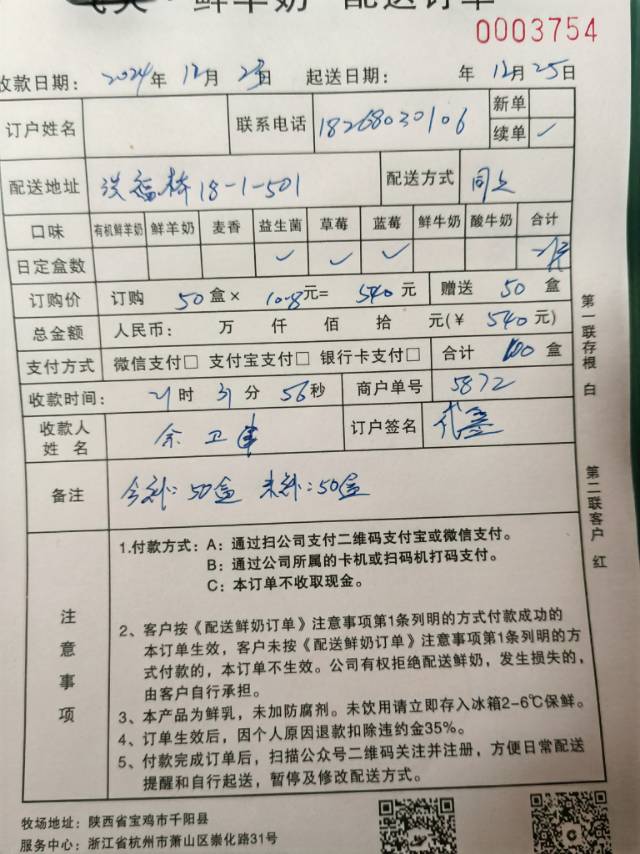 鲜羊奶 配送订单
0003754
收款日期: 2024年 12月 23日 起送日期: 年 12月25日
订户姓名 联系电话 18268030106 新单
续单 ✓
配送地址 18-1-501 配送方式 同上
口味 有机鲜羊奶 鲜羊奶 麦香 益生菌 草莓 蓝莓 鲜牛奶 酸牛奶 合计
日定盒数 ✓ ✓ ✓
订购价 订购 50盒× 10.8元= 540元 赠送 50 盒
总金额 人民币: 万 仟 佰 拾 元(¥ 540元)
支付方式 微信支付□ 支付宝支付□ 银行卡支付□ 合计 100 盒
收款时间: 21时 31分 56秒 商户单号 5872
收款人姓名 余卫 订户签名
备注 50盒 50盒
第一联存根 白
第二联客户 红
注意事项
1.付款方式: A: 通过扫公司支付二维码支付宝或微信支付。
B: 通过公司所属的卡机或扫码机打码支付。
C: 本订单不收取现金。
2、客户按《配送鲜奶订单》注意事项第1条列明的方式付款成功的
本订单生效,客户未按《配送鲜奶订单》注意事项第1条列明的方
式付款的,本订单不生效。公司有权拒绝配送鲜奶,发生损失的,
由客户自行承担。
3、本产品为鲜乳,未加防腐剂。未饮用请立即存入冰箱2-6℃保鲜。
4、订单生效后,因个人原因退款扣除违约金35%。
5、付款完成订单后,扫描公众号二维码关注并注册,方便日常配送
提醒和自行起送,暂停及修改配送方式。
牧场地址: 陕西省宝鸡市千阳县
服务中心: 浙江省杭州市萧山区崇化路31号